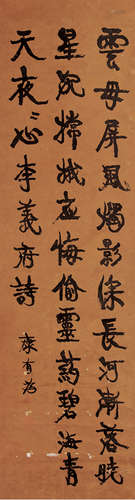 雲母屏風燭影深長河漸落曉
星沈嫦娥應悔偷靈藥碧海青
天夜〻心李義府詩
康有為